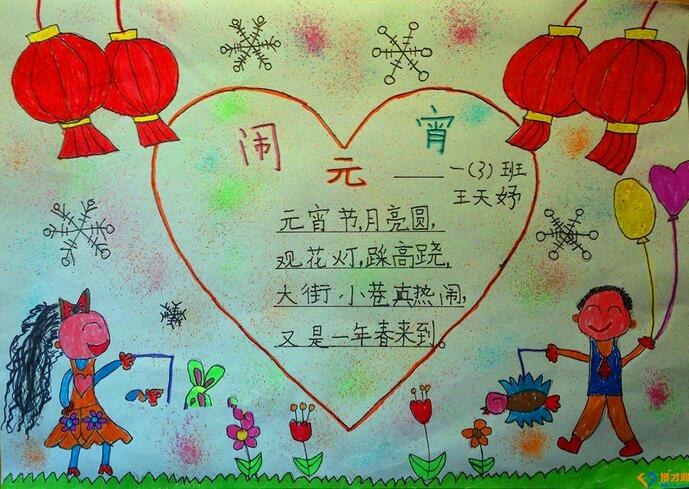 闹元宵
——一(3)班
王天妤
元宵节,月亮圆,
观花灯,踩高跷,
大街小巷真热闹,
又是一年春来到。
博才网